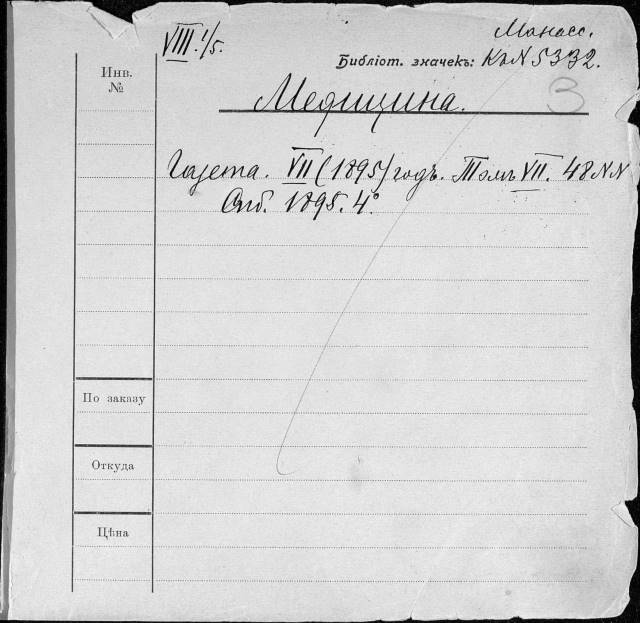 VIII. 1/5.
Манасс.
Библіот. значекъ: К. №5332.
Инв.
№
Медицина.
3
Газета. VII (1895) годъ. Томъ VII. 48 NN
Спб. 1895. 4°.
По заказу
Откуда
Цѣна